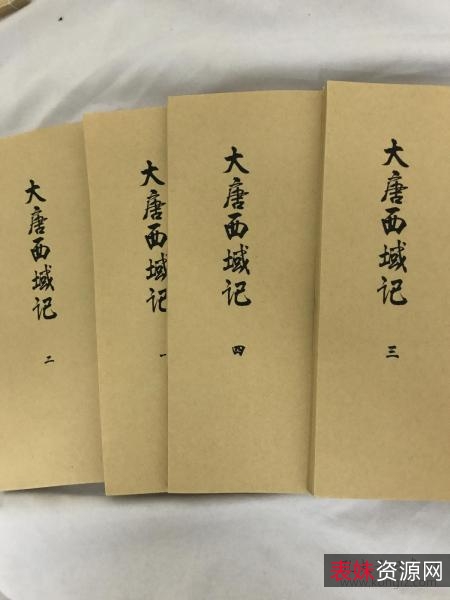 大唐西域记
二
大唐西域记
一
大唐西域记
四
大唐西域记
三
表妹资源网